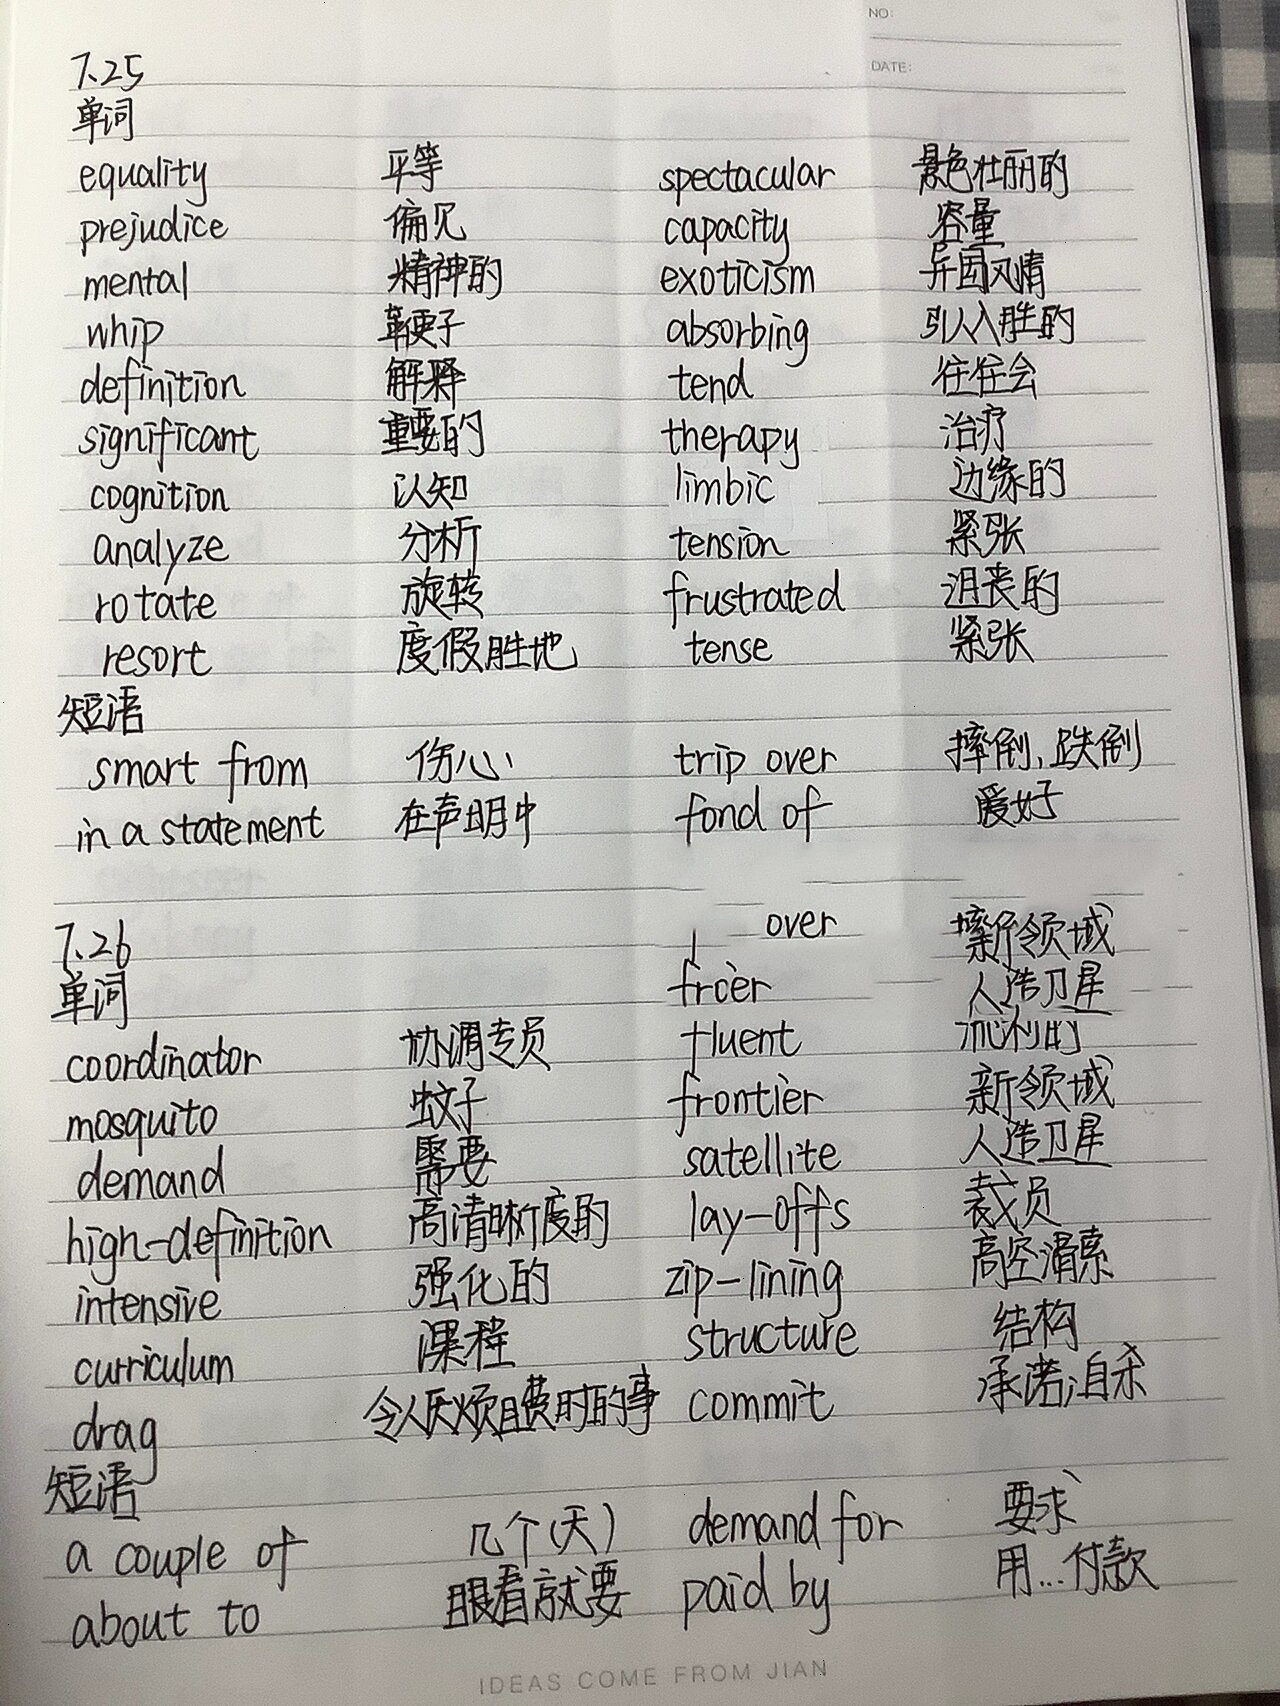 NO:
DATE:
7.25
单词
equality 平等 spectacular 景色壮丽的
prejudice 偏见 capacity 容量
mental 精神的 exoticism 异国风情
whip 鞭子 absorbing 引人入胜的
definition 解释 tend 往往会
significant 重要的 therapy 治疗
cognition 认知 limbic 边缘的
analyze 分析 tension 紧张
rotate 旋转 frustrated 沮丧的
resort 度假胜地 tense 紧张
短语
smart from 伤心 trip over 摔倒、跌倒
in a statement 在声明中 fond of 爱好
7.26 over 新领域
单词 人造卫星
coordinator 协调专员 fluent 流利的
mosquito 蚊子 frontier 新领域
demand 需要 satellite 人造卫星
high-definition 高清晰度的 lay-offs 裁员
intensive 强化的 zip-lining 高空滑索
curriculum 课程 structure 结构
drag 令人厌烦且费时的事 commit 承诺;自杀
短语
a couple of 几个(天) demand for 要求
about to 眼看就要 paid by 用...付款
IDEAS COME FROM JIAN